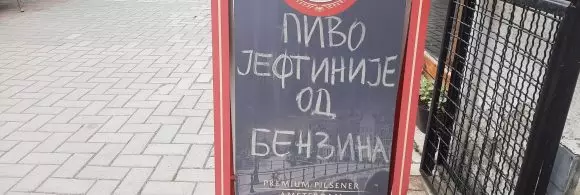 ПИВО
ЈЕФТИНИЈЕ
ОД
БЕНЗИНА
PREMIUM PILSENER